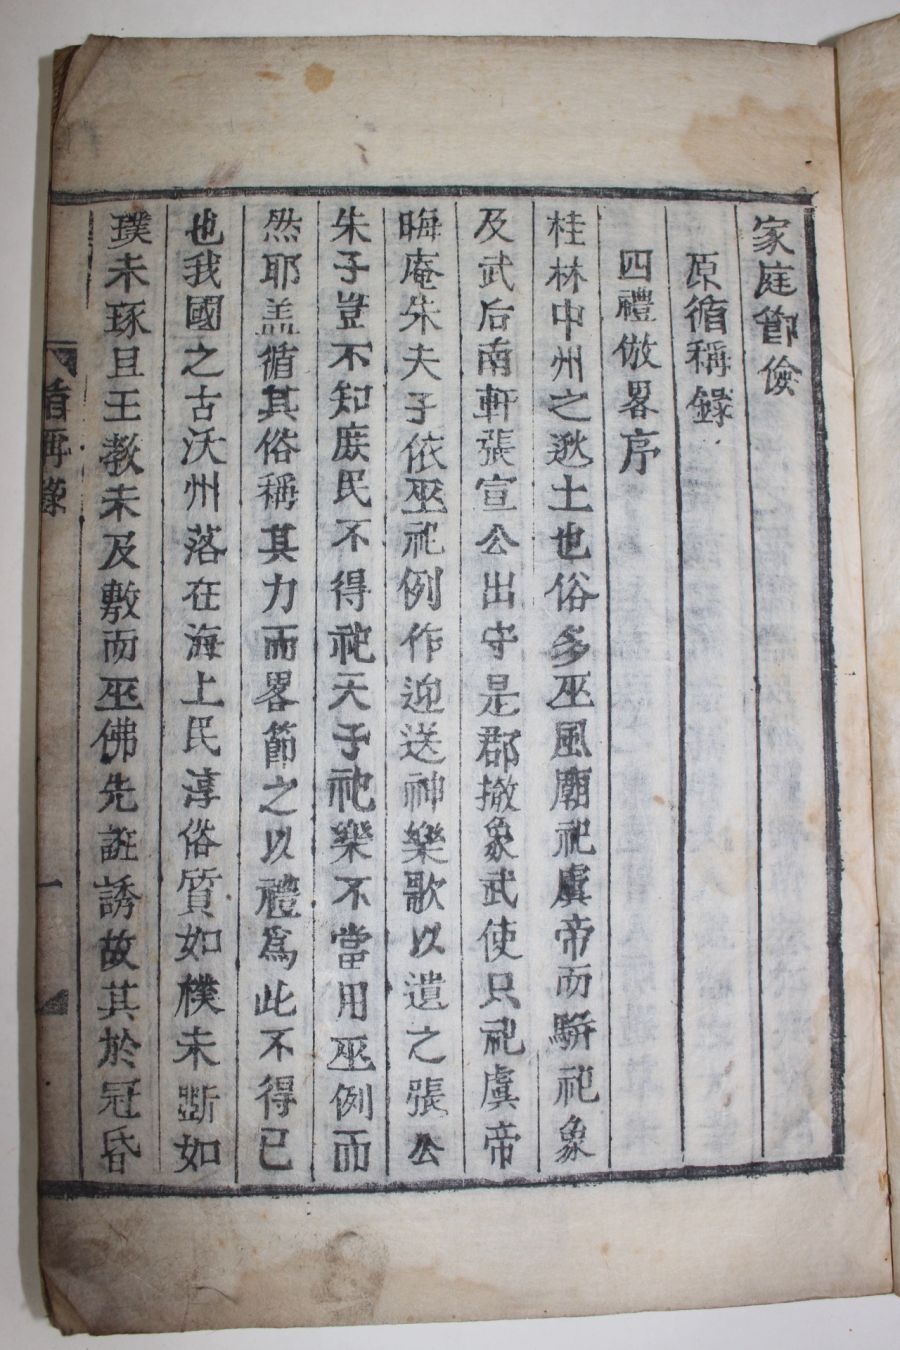 家庭節儉
原循稱錄
四禮倣畧序
桂林中州之逖土也俗多巫風廟祀虞帝而騈祀象
及武后南軒張宣公出守是郡撤象武使只祀虞帝
晦庵朱夫子依巫祀例作迎送神樂歌以遺之張公
朱子豈不知庻民不得祀天子祀樂不當用巫例而
然耶盖循其俗稱其力而畧節之以禮爲此不得已
也我國之古沃州落在海上民淳俗質如樸未斲如
璞未琢且王教未及敷而巫佛先誑誘故其於冠昏
循稱錄
一